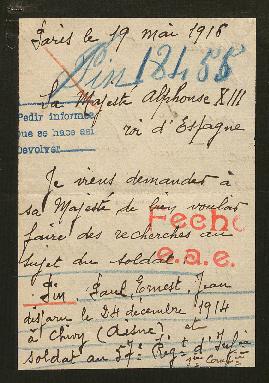 Paris le 19 mai 1916
Fin 18455
Sa Majesté Alphonse XIII
roi d'Espagne
Pedir informes
Que se hace así
Devolver
Je viens demander à
sa Majesté de bien vouloir
faire des recherches au
sujet du soldat.
Fecho
e.a.e.
Fin Paul Ernest Jean
disparu le 24 décembre 1914
à Chivy (Aisne) et
soldat au 57e Regt d'Infie